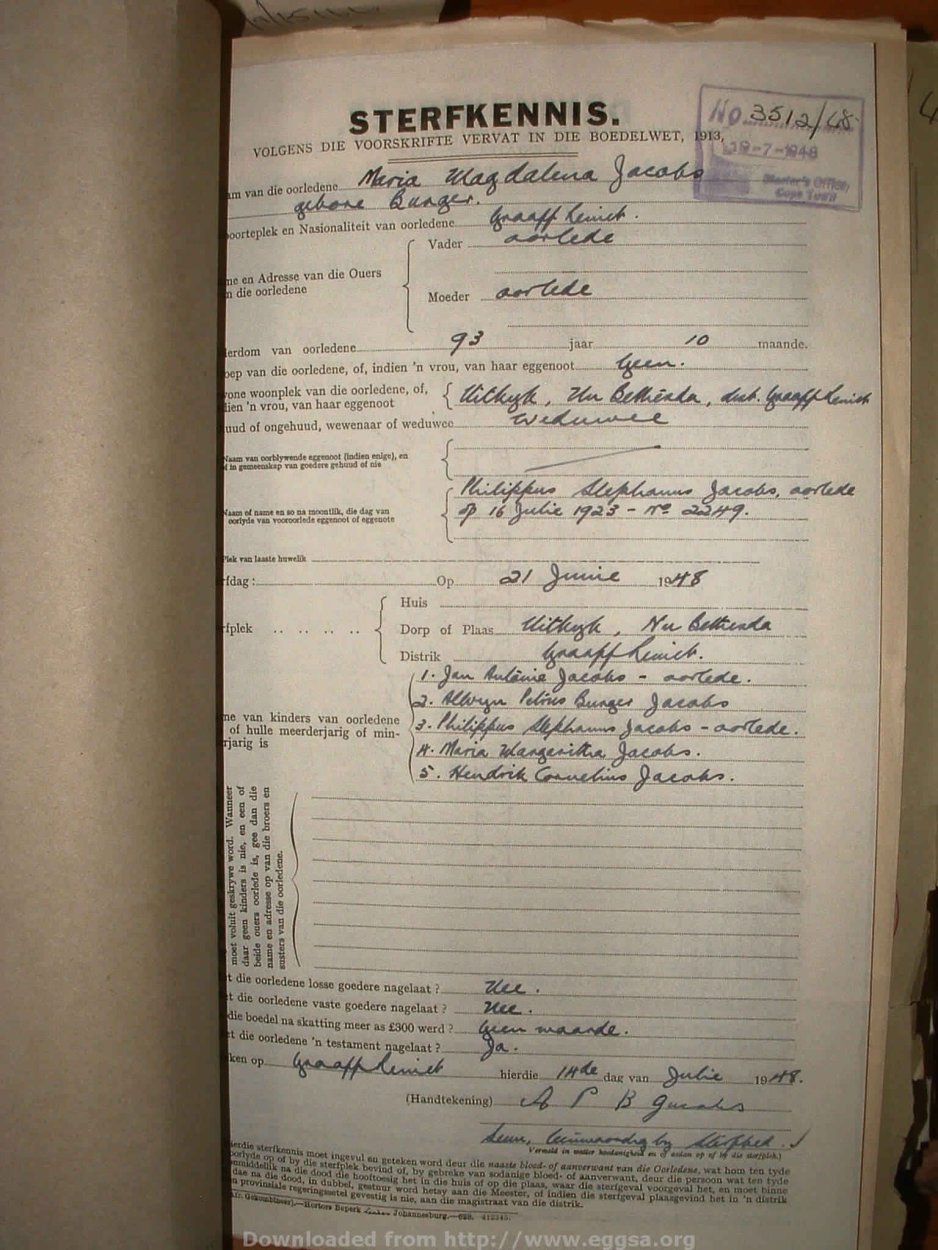 STERFKENNIS.
VOLGENS DIE VOORSKRIFTE VERVAT IN DIE BOEDELWET, 1913,
No 3512/48
19-7-1948
Master's Office,
Cape Town
am van die oorledene Maria Magdalena Jacobs
gebore Burger.
oorteplek en Nasionaliteit van oorledene Graaff Reinet.
Vader oorlede
ne en Adresse van die Ouers
n die oorledene
Moeder oorlede
lerdom van oorledene 93 jaar 10 maande.
oep van die oorledene, of, indien 'n vrou, van haar eggenoot Geen.
one woonplek van die oorledene, of,
lien 'n vrou, van haar eggenoot
Uitkyk, Nu Bethesda, dist. Graaff Reinet
uud of ongehuud, wewenaar of weduwee weduwee
Naam van oorblywende eggenoot (indien enige), en
of in gemeenskap van goedere gehuud of nie
Philippus Stephanus Jacobs, oorlede
op 16 Julie 1923 - No 2249.
Naam of name en so na moontlik, die dag van
oorlyde van vooroorlede eggenoot of eggenote
Plek van laaste huwelik
rfdag: Op 21 Junie 1948
Huis
rfplek Dorp of Plaas Uitkyk, Nu Bethesda
Distrik Graaff Reinet.
1. Jan Antonie Jacobs - oorlede.
2. Alwyn Petrus Burger Jacobs
3. Philippus Stephanus Jacobs - oorlede.
4. Maria Margaritha Jacobs.
5. Hendrik Cornelius Jacobs.
ne van kinders van oorledene
of hulle meerderjarig of min-
rjarig is
moet voluit geskrywe word. Wanneer
daar geen kinders is nie, en een of
beide ouers oorlede is, gee dan die
name en adresse op van die broers en
susters van die oorledene.
t die oorledene losse goedere nagelaat? Nee.
t die oorledene vaste goedere nagelaat? Nee.
die boedel na skatting meer as £300 werd? Geen waarde.
t die oorledene 'n testament nagelaat? Ja.
ken op Graaff Reinet hierdie 14de dag van Julie 1948.
(Handtekening) A P B Jacobs
Seun, teenwoordig by sterfbed.
Vermeld in watter hoedanigheid en of
ierdie sterfkennis moet ingevul en geteken word deur die naaste bloed- of aanverwant van die Oorledene, wat hom ten tyde
oorlyde op of by die sterfplek bevind of, by gebreke van sodanige bloed- of aanverwant, deur die persoon wat ten tyde
nmiddellik na die dood die hooftoesig het in die huis of op die plaas, waar die sterfgeval voorgeval het, en moet binne
dae na die dood, in dubbel, gestuur word hetsy aan die Meester, of indien die sterfgeval plaasgevind het in 'n distrik
n provinsiale regeringsetel gevestig is nie, aan die magistraat van die distrik.
Hortors Beperk Johannesburg.
Downloaded from http://www.eggsa.org